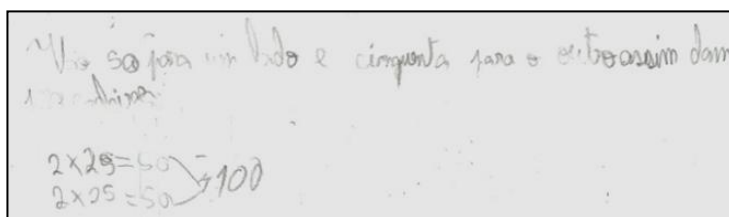 Vão 50 para um lado e cinquenta para o outro assim dam
2x25=50
2x25=50 > 100